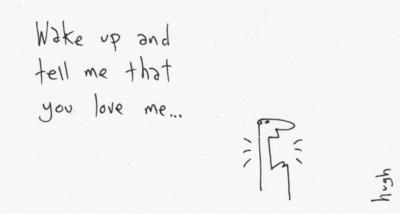 Wake up and
tell me that
you love me...
hugh